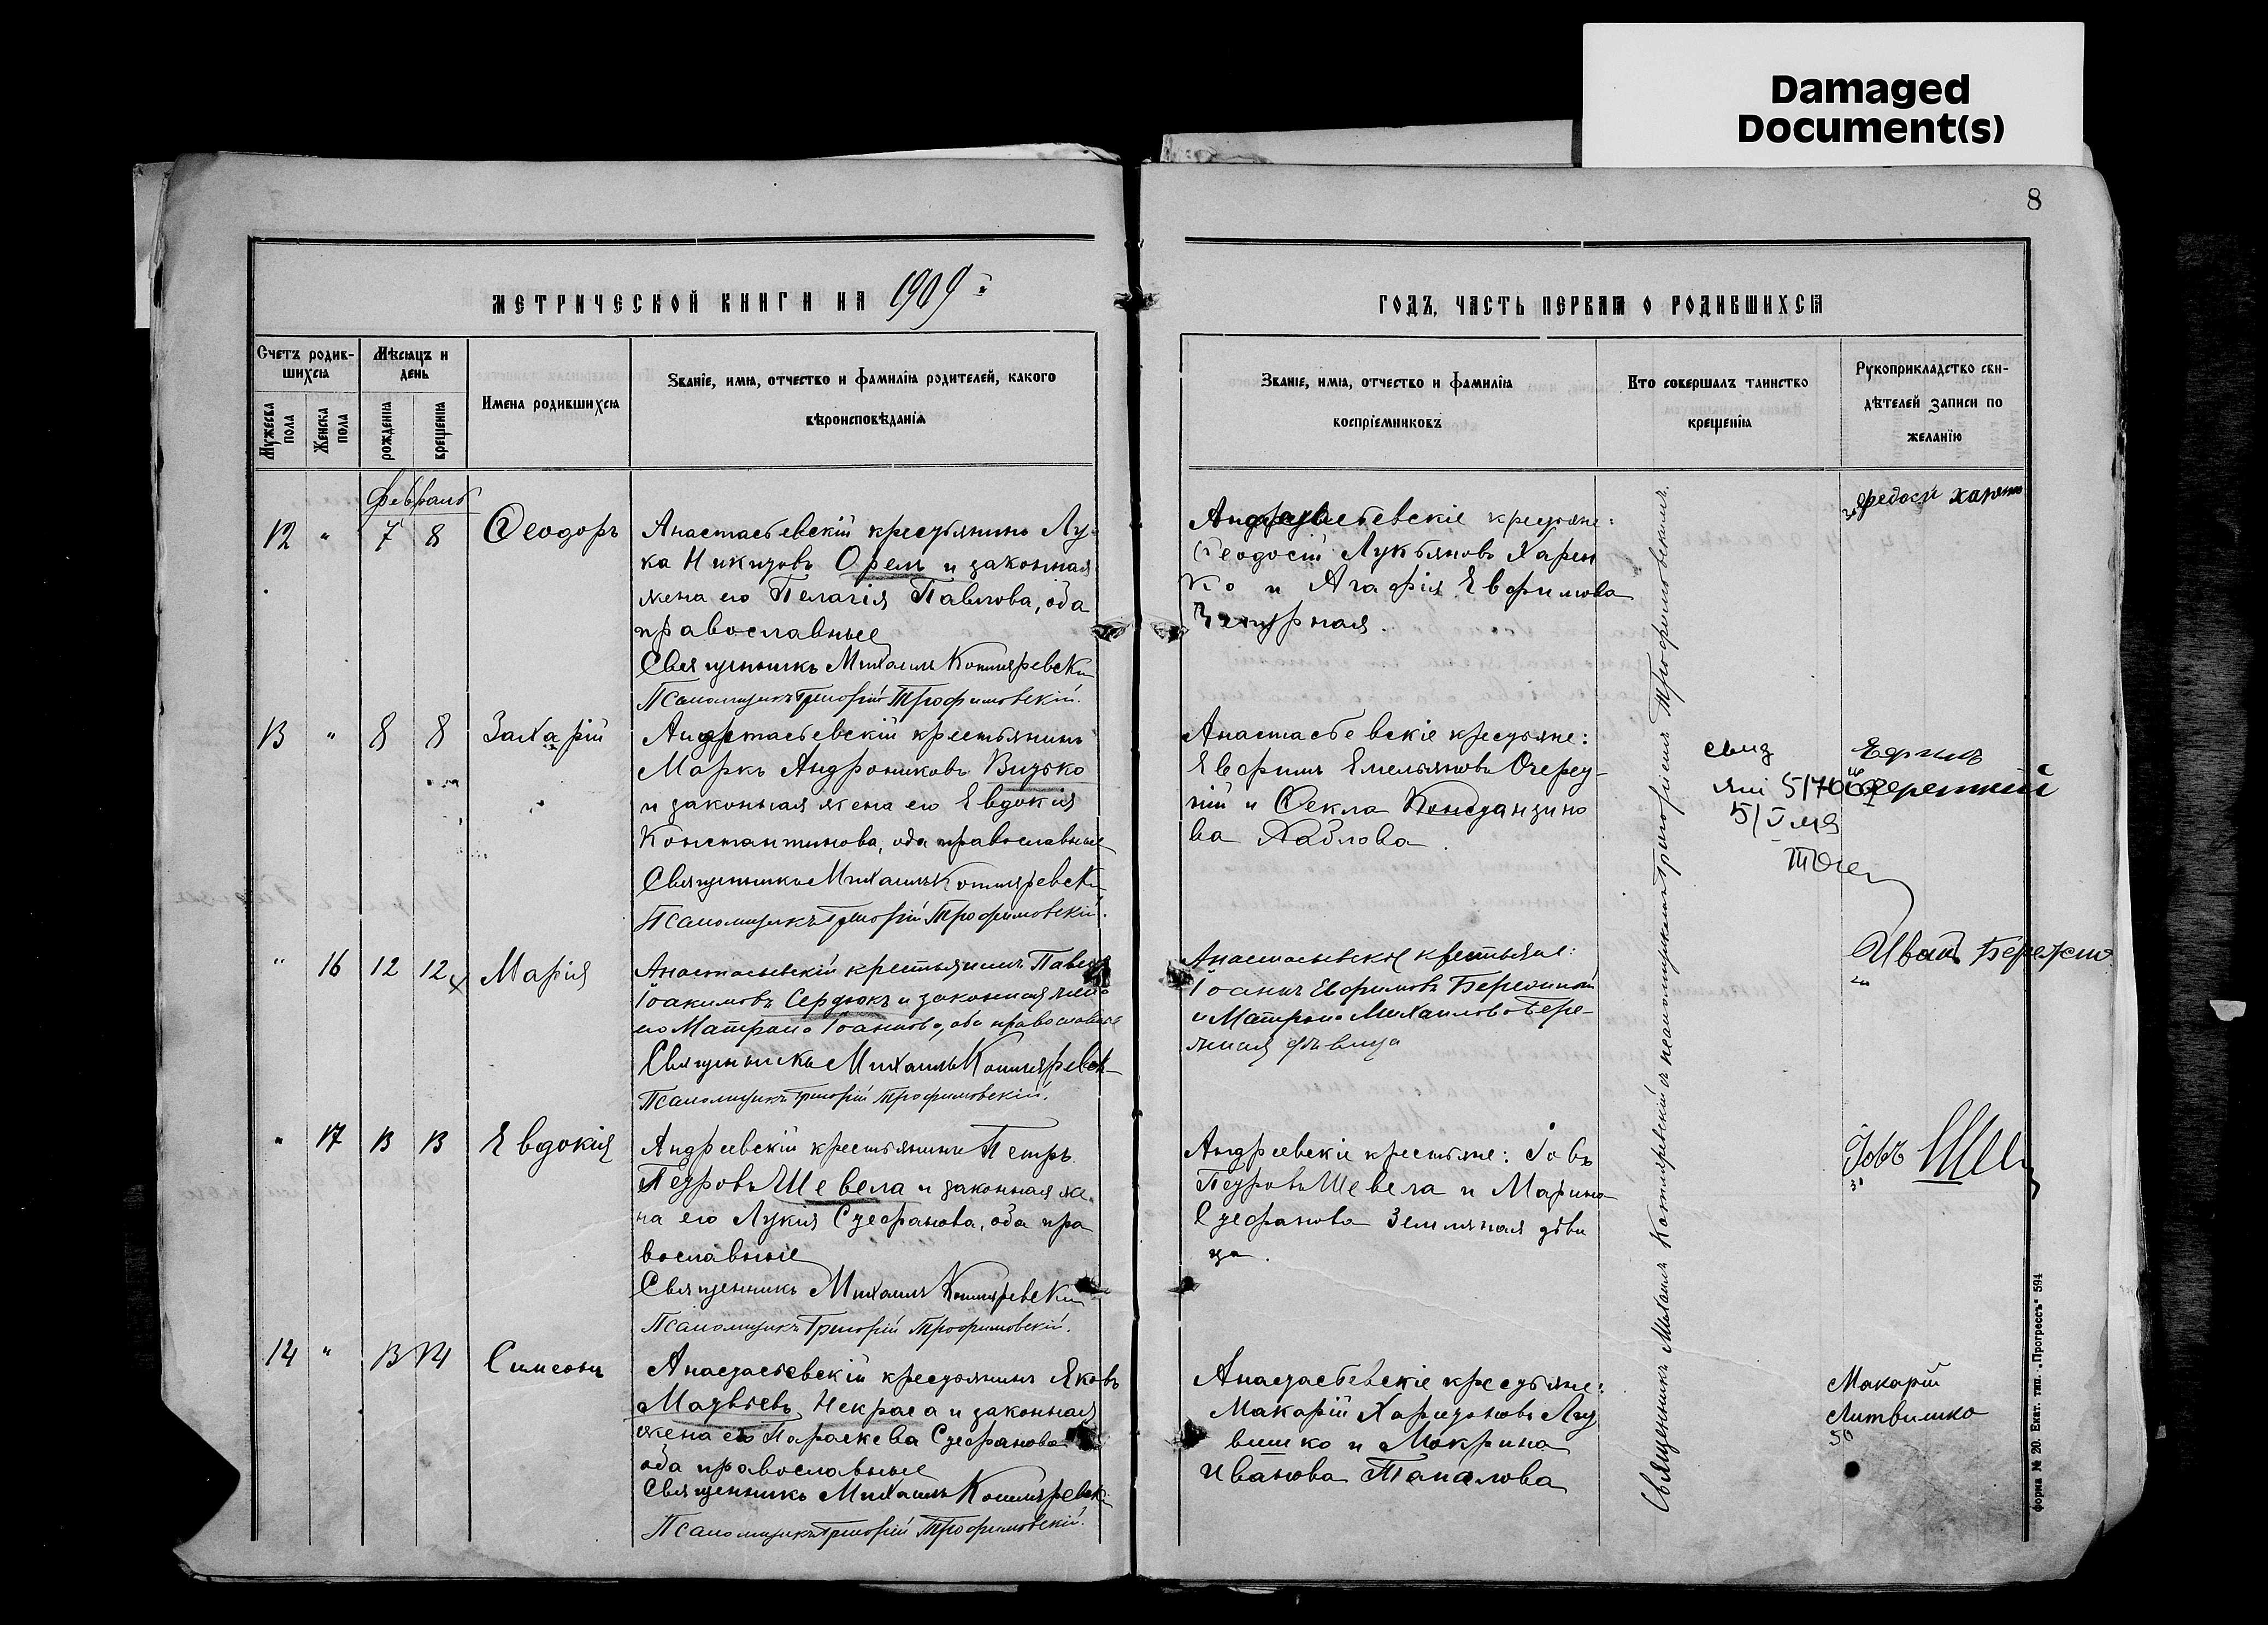 Damaged
Document(s)
8
МЕТРИЧЕСКОЙ КНИГИ НА 1909 г.
ГОДЪ, ЧАСТЬ ПЕРВАЯ О РОДИВШИХСЯ
Счетъ родив-
шихся
Мѣсяцъ и
день
Мужеска
пола
Женска
пола
рожденія
крещенія
Имена родившихся
Званіе, имя, отчество и фамилія родителей, какого
вѣроисповѣданія
Званіе, имя, отчество и фамилія
воспріемниковъ
Кто совершалъ таинство
крещенія
Рукоприкладство сви-
дѣтелей записи по
желанію
Февраль
12 " 7 8 Ѳеодоръ
Анастасьевскій крестьянинъ Лу-
ка Никитовъ Орелъ и законная
жена его Пелагія Павлова, оба
православные
Священникъ Михаилъ Котляревскій
Псаломщикъ Григорій Трофимовскій.
крестьяне:
Ѳеодосій Лукьяновъ Харен
ко и Агафія Евфимова
Федоси
13 " 8 8 Захарій
крестьянинъ
Маркъ Андрониковъ Витько
и законная жена его Евдокія
Константинова, оба православные
Священникъ Михаилъ Котляревскій
Псаломщикъ Григорій Трофимовскій.
Анастасьевскіе крестьяне:
Евфимъ Емельяновъ Очерет-
ній и Ѳекла Константино
ва Павлова
Ефимъ
" 16 12 12 Марія
Анастасьевскій крестьянинъ Павелъ
Іоакимовъ Сердюкъ и законная жена
его Матрона Іоаннова, оба православные
Священникъ Михаилъ Котляревск
Псаломщикъ Григорій Трофимовскій.
Анастасьевскіе крестьяне:
Іоаннъ Евфимовъ Бережной
и Матрона Михаилова Бере-
жная дѣвица
Иванъ Бережно
" 17 13 13 Евдокія
Андреевскій крестьянинъ Петръ
Петровъ Шевела и законная же-
на его Лукія Стефанова, оба пра
вославные
Священникъ Михаилъ Котляревскій
Псаломщикъ Григорій Трофимовскій.
Андреевскіе крестьяне: Іовъ
Петровъ Шевела и Марина
Стефанова Земляная дѣви
ца.
Іовъ
14 " 13 14 Симеонъ
Анастасьевскій крестьянинъ Яковъ
Матвѣевъ Некраса и законная
жена его Параскева Стефанова
оба православные
Священникъ Михаилъ Котляревскій
Псаломщикъ Григорій Трофимовскій.
Анастасьевскіе крестьяне:
Макарій Харитоновъ Лит
вишко и Макрина
Иванова
Макарій
Литвишко
Священникъ Михаилъ Котляревскій съ псаломщикомъ Григоріемъ Трофимовскимъ.
форма № 20. Екат. тип. „Прогрессъ“ 594